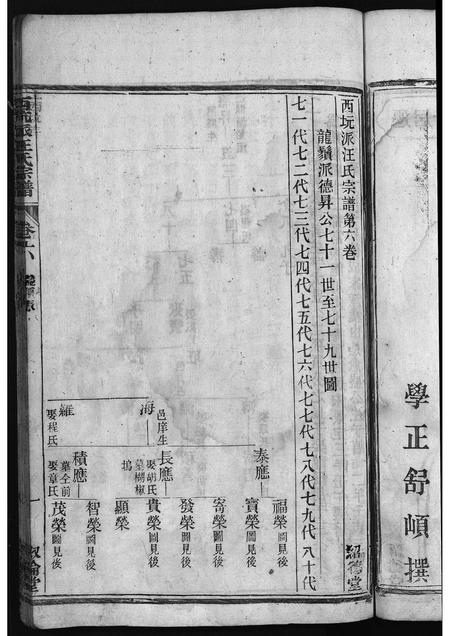 學正舒頔撰
西坑派汪氏宗譜第六卷
龍鬚派德昇公七十一世至七十九世圖
七一代七二代七三代七四代七五代七六代七七代七八代七九代八十代
紹德堂
泰應
福榮圖見後
寶榮圖見後
寄榮圖見後
海邑庠生
長應娶胡氏墓楜椒塢
發榮圖見後
貴榮圖見後
顯榮
羅娶程氏
積應墓仝前娶章氏
智榮圖見後
茂榮圖見後
西坑派汪氏宗譜
卷六
一